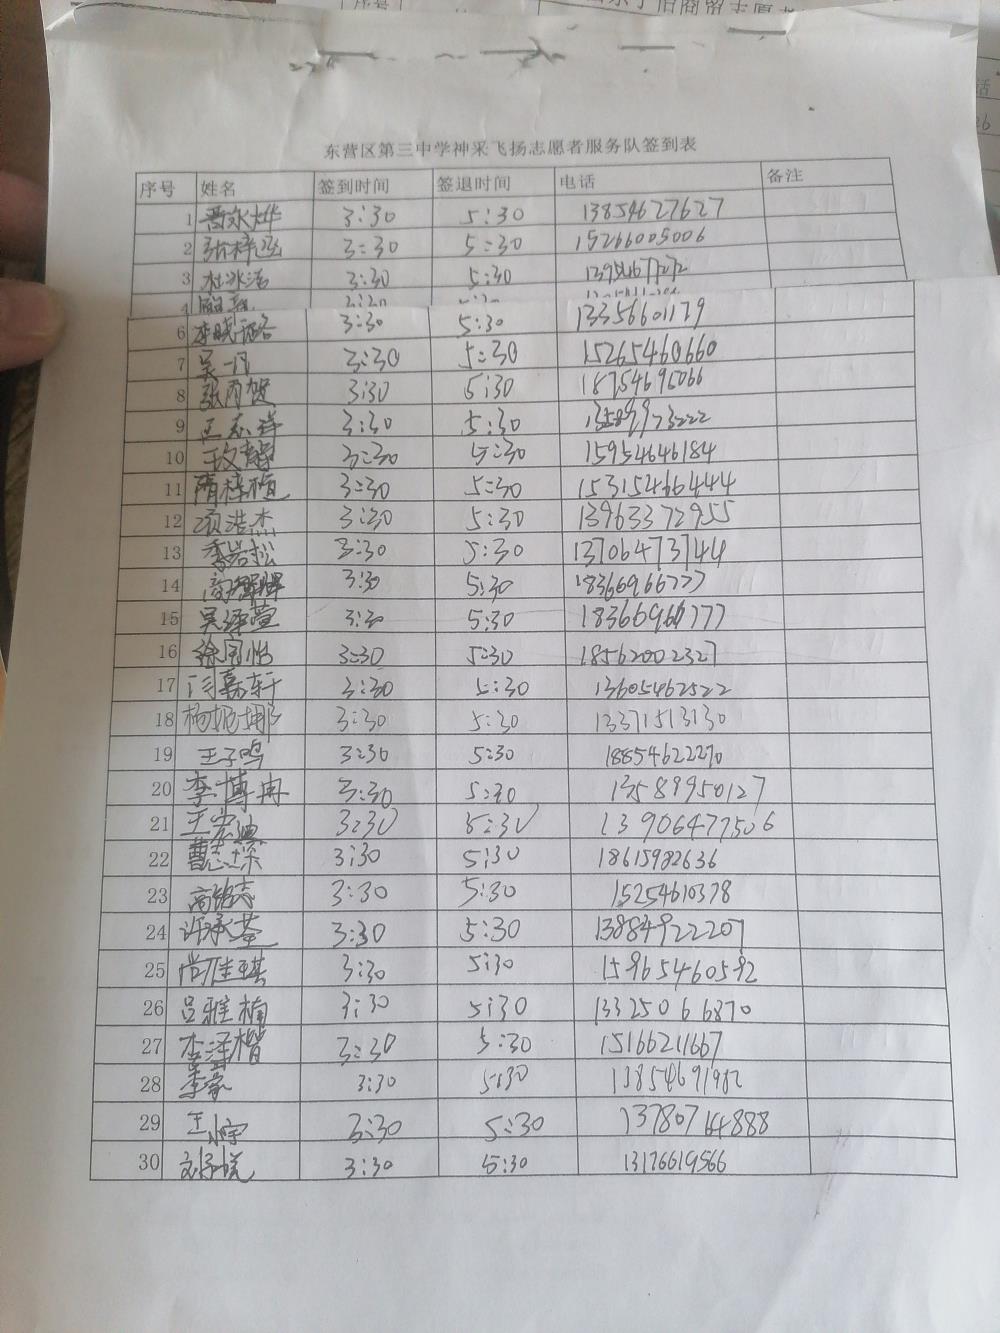 东营区第三中学神采飞扬志愿者服务队签到表
序号 姓名 签到时间 签退时间 电话 备注
1 3:30 5:30 13854627627
2 张梓泓 3:30 5:30 15266005006
3 杜冰洁 3:30 5:30 13954677272
4
6 李晓 3:30 5:30 13356601179
7 吴一凡 3:30 5:30 15265460660
8 张芮贺 3:30 5:30 18754695066
9 3:30 5:30 13589973222
10 3:30 5:30 15954646184
11 隋梓桓 3:30 5:30 15315466444
12 项浩杰 3:30 5:30 13963372955
13 李岩松 3:30 5:30 13706473744
14 3:30 5:30 18366966777
15 吴泽萱 3:30 5:30 18366966777
16 3:30 5:30 18562002327
17 闫嘉轩 3:30 5:30 13605462522
18 杨娜娜 3:30 5:30 13371513130
19 王子鸣 3:30 5:30 18854622270
20 李博冉 3:30 5:30 13589950127
21 王宏迪 3:30 5:30 13906477506
22 曹志琛 3:30 5:30 18615982636
23 高铭志 3:30 5:30 15254610378
24 许承荃 3:30 5:30 13884922207
25 尚佳琪 3:30 5:30 15965460592
26 吕雅楠 3:30 5:30 13325066870
27 李泽楷 3:30 5:30 15166211667
28 李豪 3:30 5:30 13854691982
29 王小宇 3:30 5:30 13780764888
30 刘子悦 3:30 5:30 13176619566